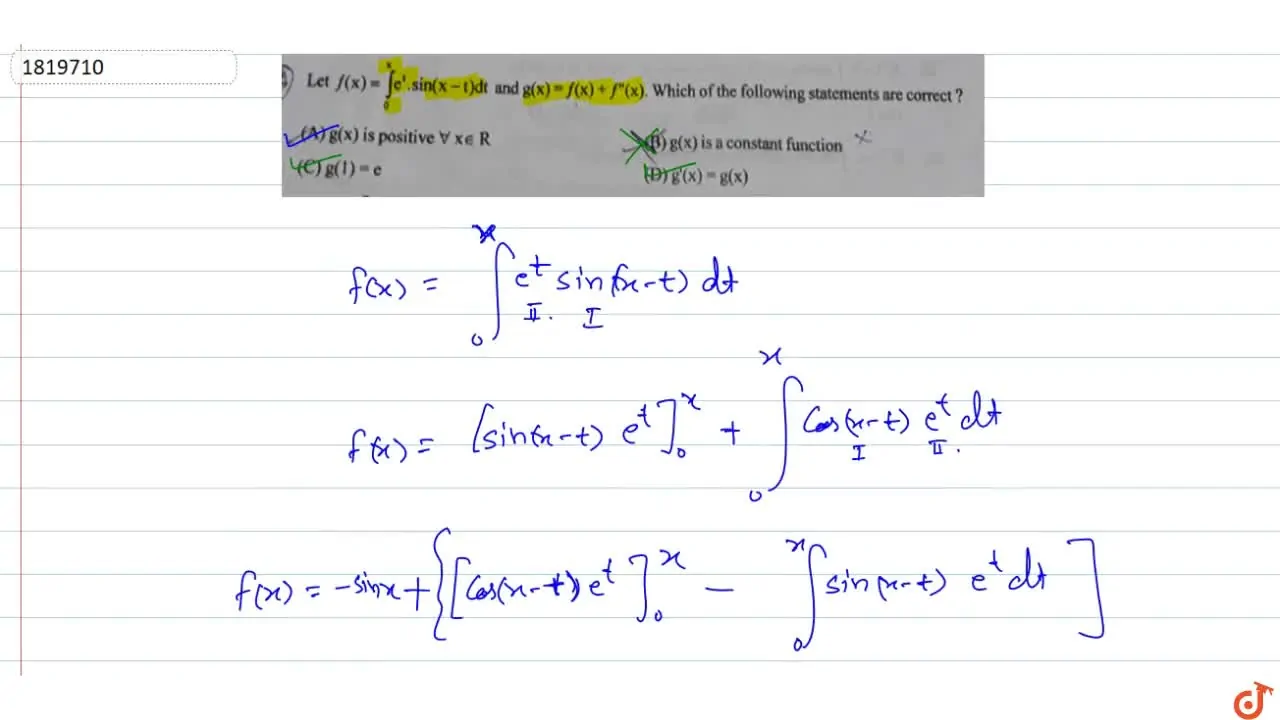 1819710
Let f(x) = ∫₀ˣ eᵗ.sin(x − t)dt and g(x) = f(x) + f''(x). Which of the following statements are correct ?
(A) g(x) is positive ∀ x∈ R
(B) g(x) is a constant function ×
(C) g(1) = e
(D) g'(x) = g(x)
f(x) = ∫₀ˣ eᵗ sin(x-t) dt
II. I
f(x) = [sin(x-t) eᵗ]₀ˣ + ∫₀ˣ Cos(x-t) eᵗ dt
I II.
f(x) = -sinx + {[Cos(x-t) eᵗ]₀ˣ - ∫₀ˣ sin(x-t) eᵗ dt]